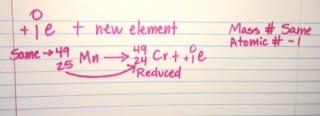 0
+1 e + new element
Mass # Same
Atomic # -1
Same → 49 25 Mn → 49 24 Cr + 0 +1 e
Reduced